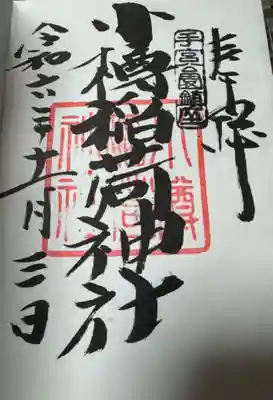 奉拝
手宮 鎮座
小樽稲荷神社
令和六年十一月三日